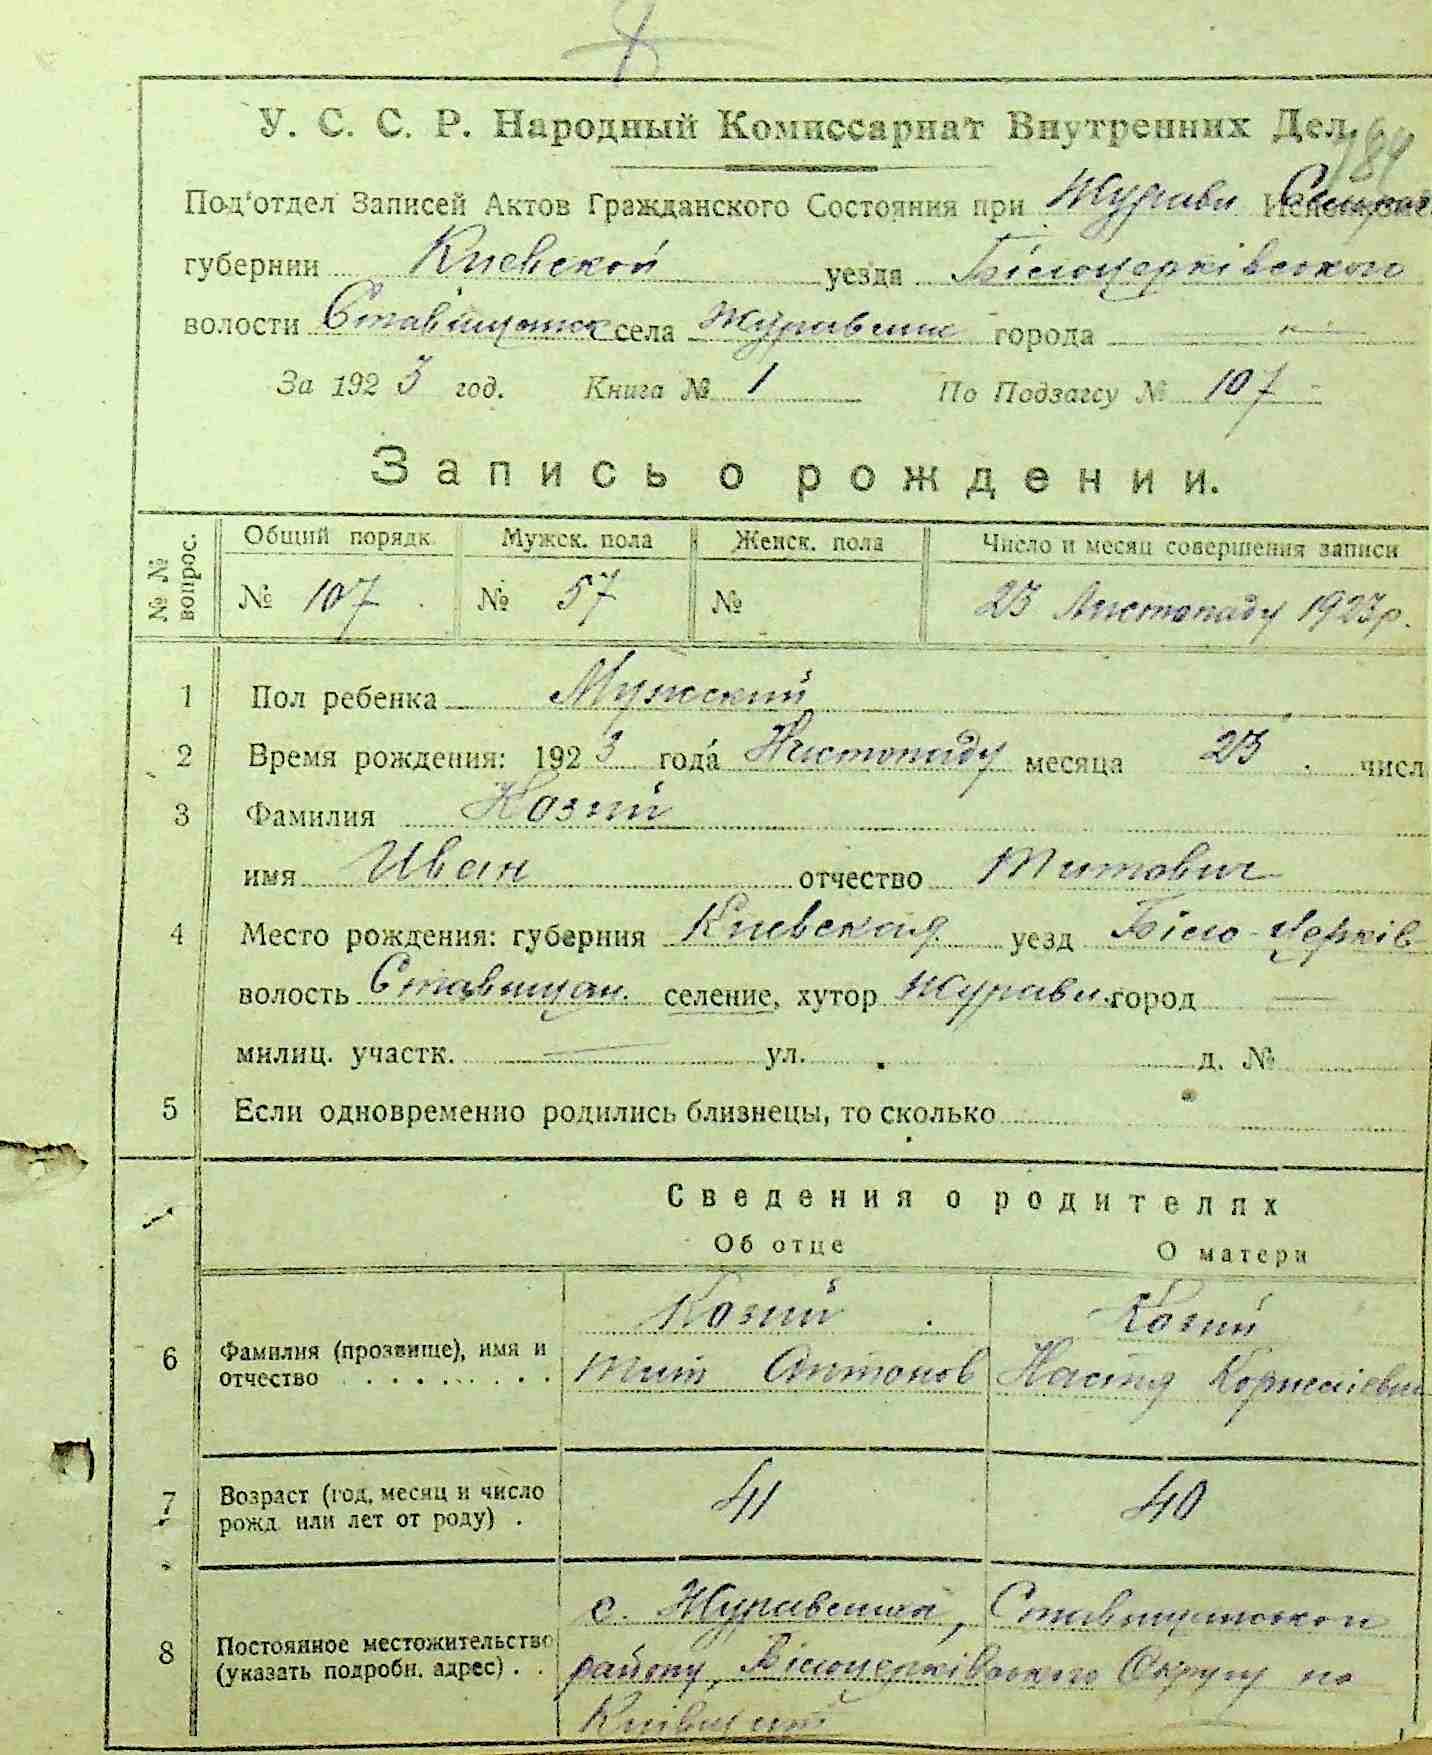 184
У. С. С. Р. Народный Комиссариат Внутренних Дел.
Под'отдел Записей Актов Гражданского Состояния при Журавл.
губернии Киевской уезда Білоцерківського
волости Ставищанск села Журавлиха города —
За 1923 год. Книга № 1 По Подзагсу № 107
Запись о рождении.
№ № вопрос. Общий порядк. Мужск. пола Женск. пола Число и месяц совершения записи
№ 107 № 57 № 25 Листопаду 1923 р.
1 Пол ребенка Мужский
2 Время рождения: 1923 года Листопаду месяца 25 числ
3 Фамилия Козий
имя Иван отчество Титович
4 Место рождения: губерния Киевская уезд Біло-Церків
волость Ставищан. селение, хутор Журавл. город —
милиц. участк. — ул. д. №
5 Если одновременно родились близнецы, то сколько
Сведения о родителях
Об отце О матери
Козий Козий
6 Фамилия (прозвище), имя и отчество Тит Антонов Настя Корніевн
7 Возраст (год, месяц и число рожд. или лет от роду) . 41 40
8 Постоянное местожительство (указать подробн. адрес) . . с. Журавлиха, Ставищанского
району, Білоцерківського Округу на
Київщині